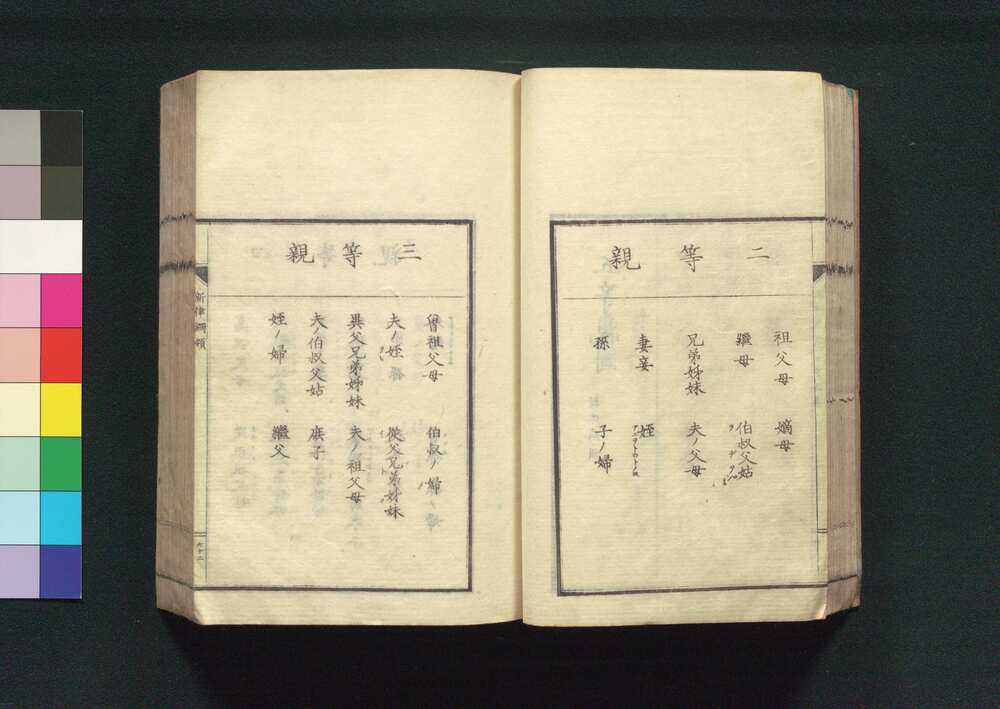 二等親
祖父母 嫡母
繼母 伯叔父姑
兄弟姊妹 夫ノ父母
妻妾 姪
孫 子ノ婦
三等親
曾祖父母 伯叔ノ婦
夫ノ姪 從父兄弟姊妹
異父兄弟姊妹 夫ノ祖父母
夫ノ伯叔父姑 庶子
姪ノ婦 繼父
新律綱領
六十二